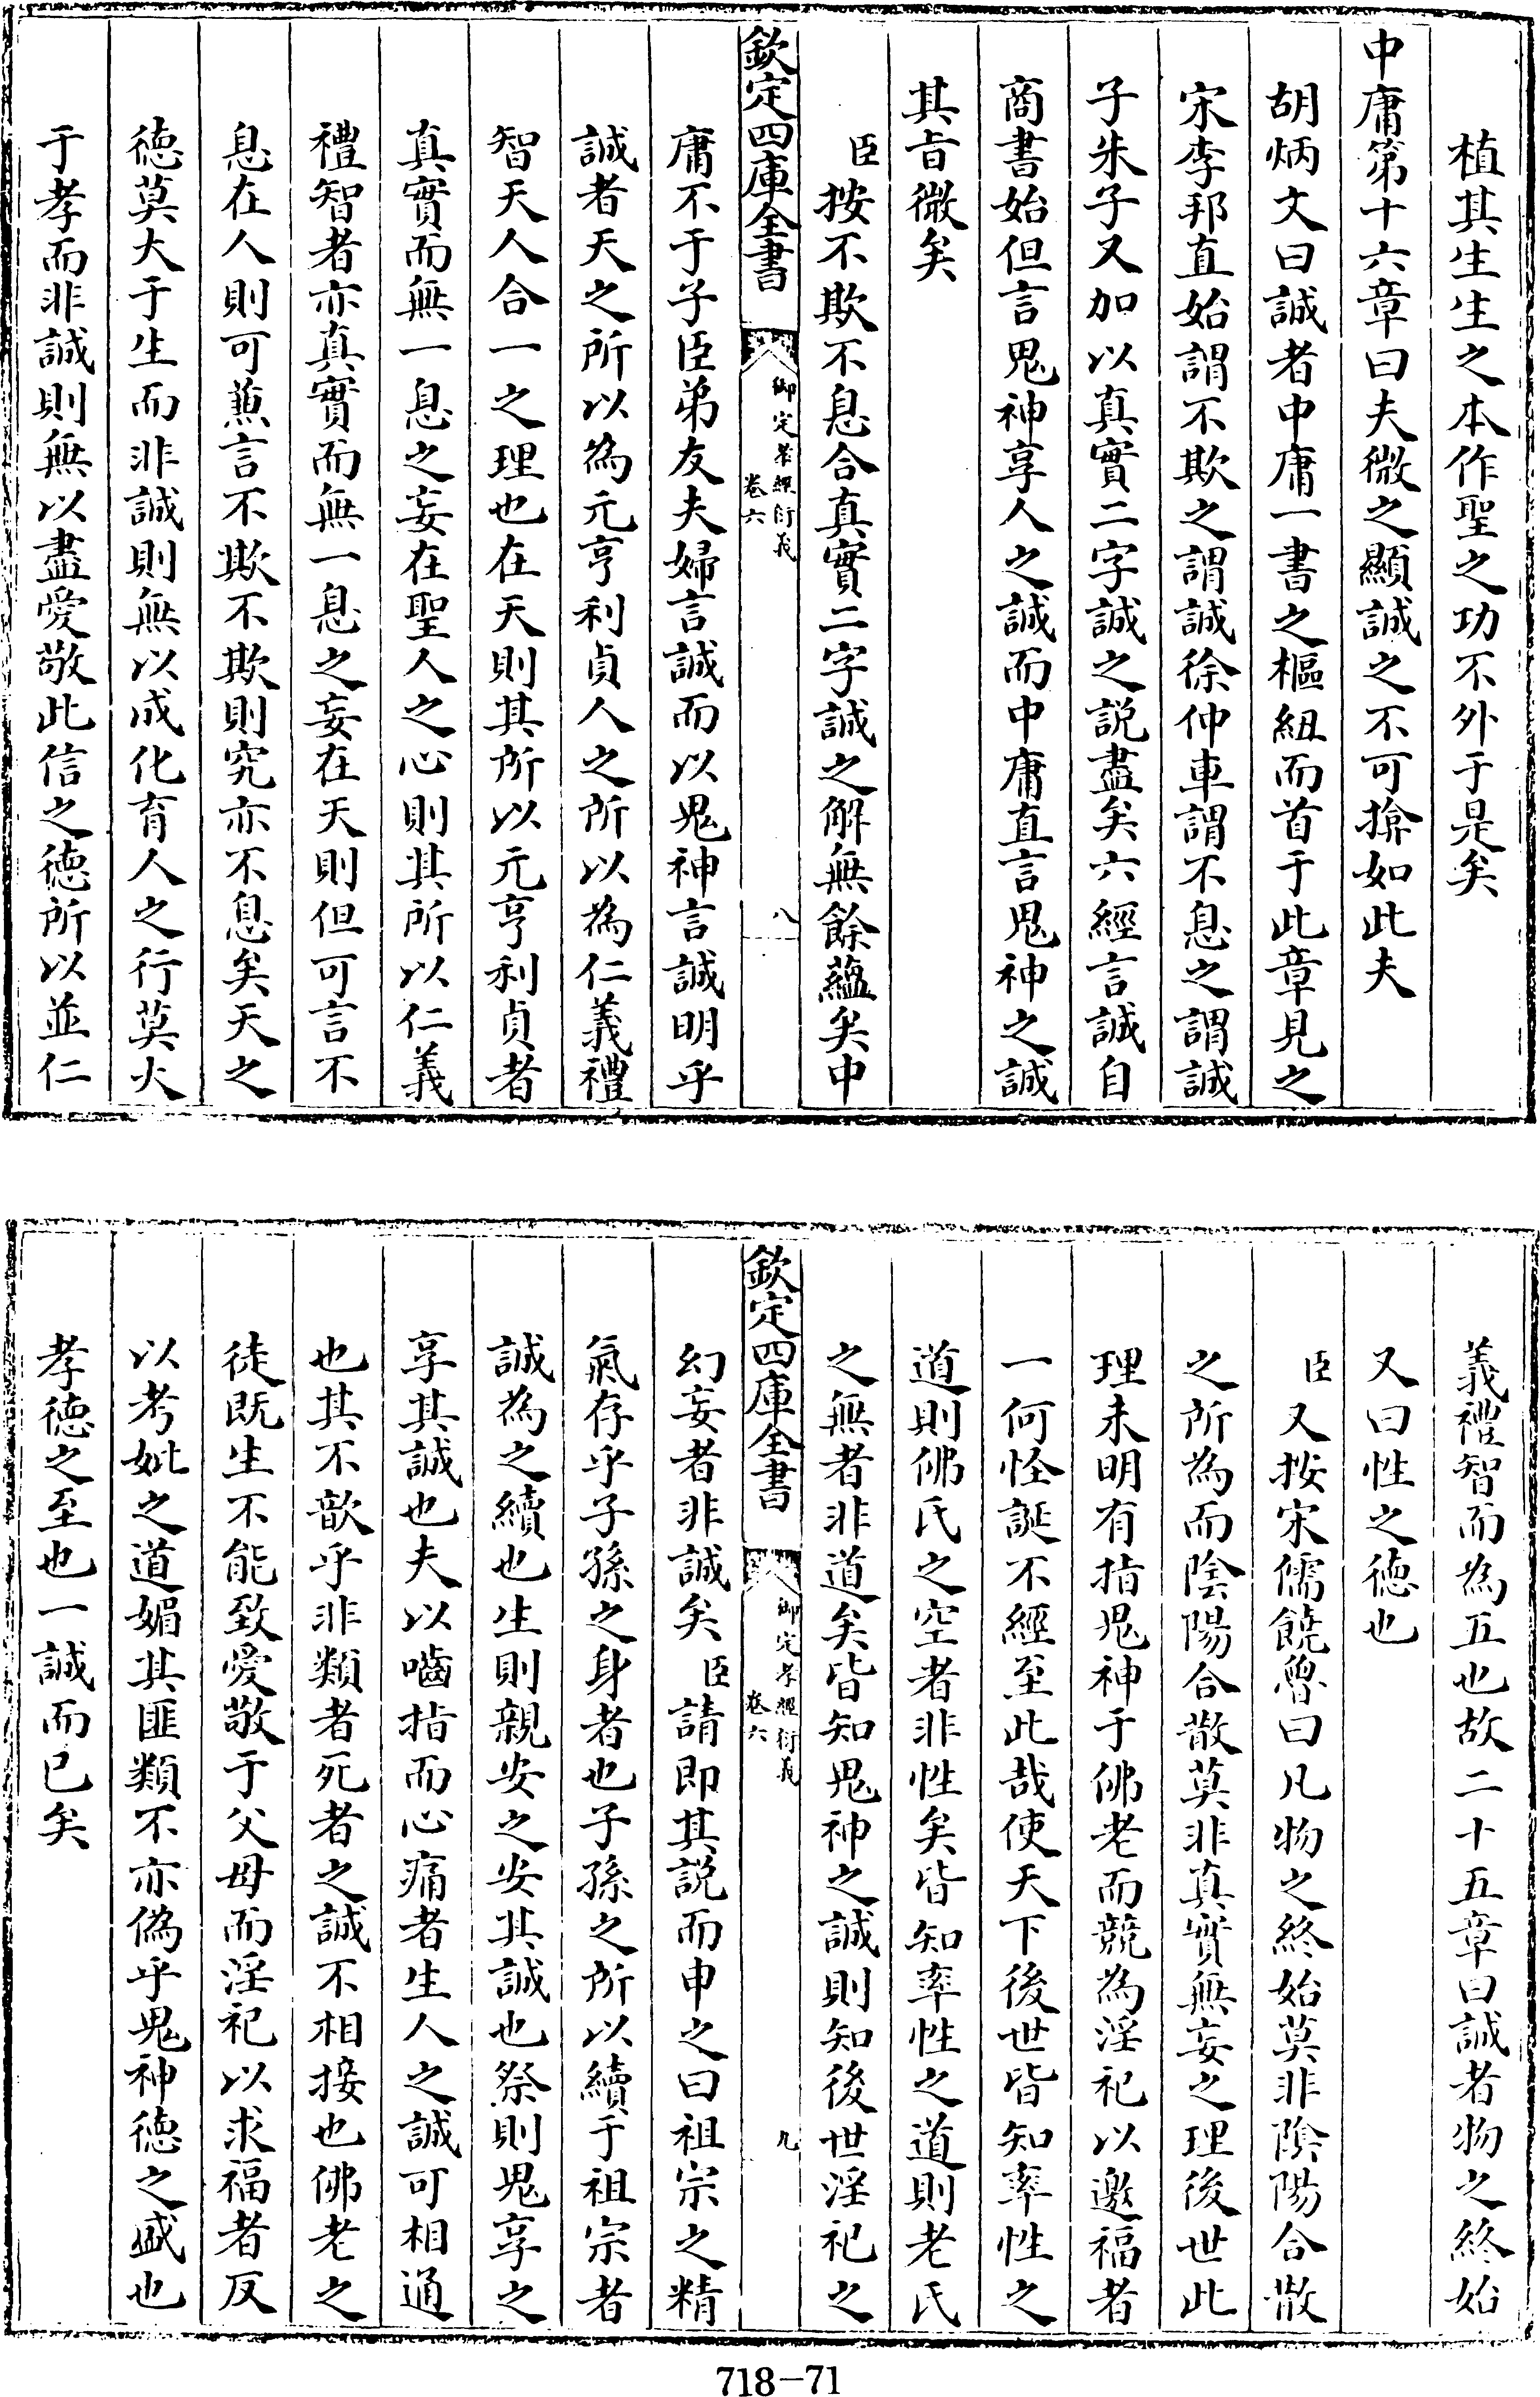 植其生生之本作聖之功不外于是矣
中庸第十六章曰夫微之顯誠之不可揜如此夫
胡炳文曰誠者中庸一書之樞紐而首于此章見之
宋李邦直始謂不欺之謂誠徐仲車謂不息之謂誠
子朱子又加以真實二字誠之説盡矣六經言誠自
商書始但言鬼神享人之誠而中庸直言鬼神之誠
其旨微矣
臣按不欺不息合真實二字誠之解無餘蘊矣中
欽定四庫全書
御定孝經衍義
卷六
八
庸不于子臣弟友夫婦言誠而以鬼神言誠明乎
誠者天之所以為元亨利貞人之所以為仁義禮
智天人合一之理也在天則其所以元亨利貞者
真實而無一息之妄在聖人之心則其所以仁義
禮智者亦真實而無一息之妄在天則但可言不
息在人則可蕙言不欺不欺則究亦不息矣天之
徳莫大于生而非誠則無以成化育人之行莫大
于孝而非誠則無以盡愛敬此信之徳所以並仁
義禮智而為五也故二十五章曰誠者物之終始
又曰性之徳也
臣又按宋儒饒魯曰凡物之終始莫非陰陽合散
之所為而陰陽合散莫非真實無妄之理後世此
理未明有指鬼神于佛老而競為淫祀以邀福者
一何怪誕不經至此哉使天下後世皆知率性之
道則佛氏之空者非性矣皆知率性之道則老氏
之無者非道矣皆知鬼神之誠則知後世淫祀之
欽定四庫全書
御定孝經衍義
卷六
九
幻妄者非誠矣臣請即其説而申之曰祖宗之精
氣存乎子孫之身者也子孫之所以續于祖宗者
誠為之續也生則親安之安其誠也祭則鬼享之
享其誠也夫以嚙指而心痛者生人之誠可相通
也其不歆乎非類者死者之誠不相接也佛老之
徒既生不能致愛敬于父母而淫祀以求福者反
以考妣之道媚其匪類不亦偽乎鬼神徳之盛也
孝徳之至也一誠而已矣
718-71